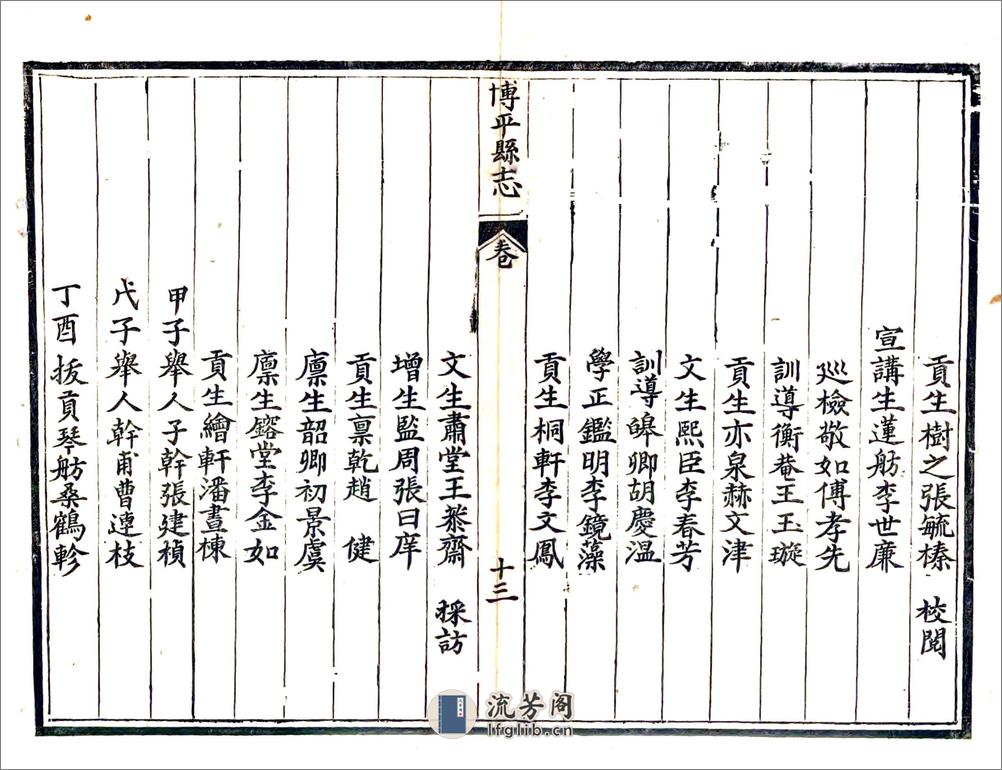 貢生樹之張毓榛 校閱
宣講生蓮舫李世廉
巡檢敬如傅孝先
訓導衡菴王玉璇
貢生亦泉赫文津
文生熙臣李春芳
訓導皞卿胡慶溫
學正鑑明李鏡藻
貢生桐軒李文鳳
博平縣志 卷 十三
文生肅堂王恭齋 採訪
增生監周張曰庠
貢生稟乾趙 健
廩生韶卿初景虞
廩生鎔堂李金如
貢生繪軒潘晝棟
甲子舉人子幹張建楨
戊子舉人幹甫曹連枝
丁酉拔貢琴舫桑鶴軫
流芳阁
lfglib.cn